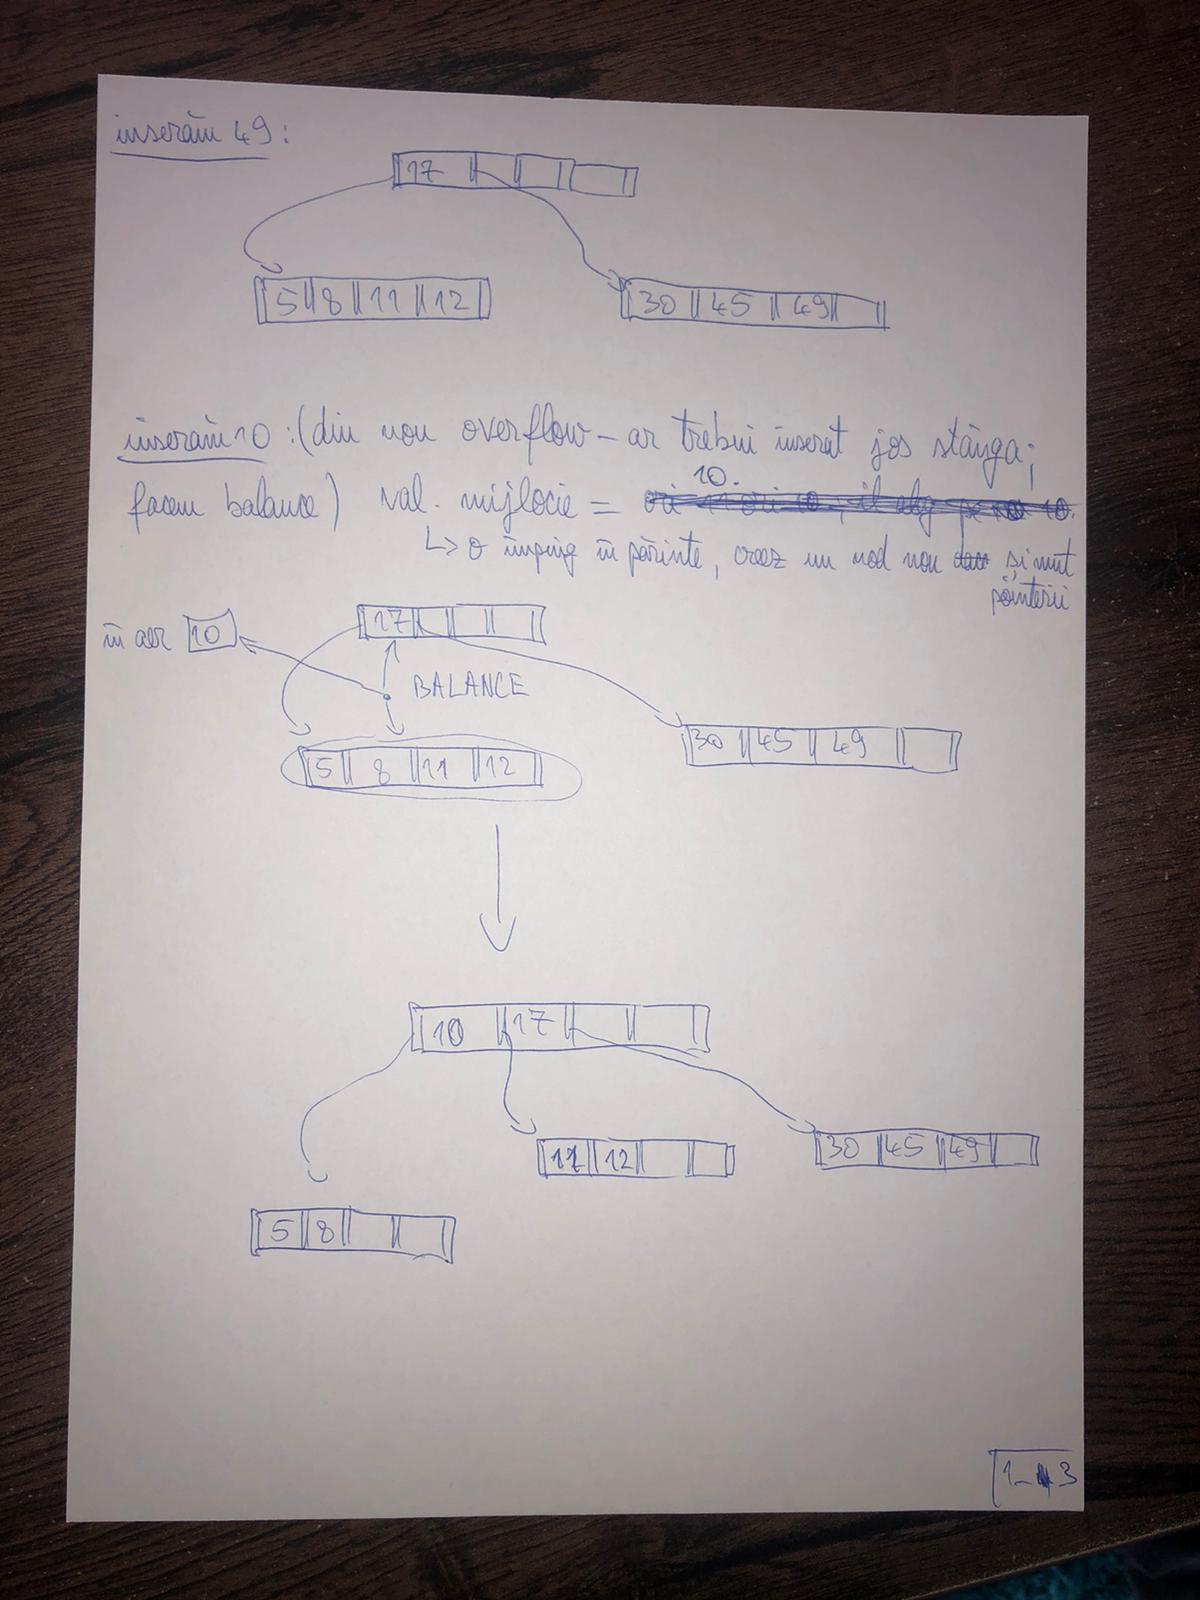 inserăm 49:
17
5 8 11 12
30 45 49
inserăm 10: (din nou overflow – ar trebui inserat jos stânga;
facem balance) val. mijlocie = 10.
↳ o împing în părinte, creez un nod nou și mut
pointerii
în aer 10
17
BALANCE
5 8 11 12
30 45 49
10 17
11 12
30 45 49
5 8
1-3